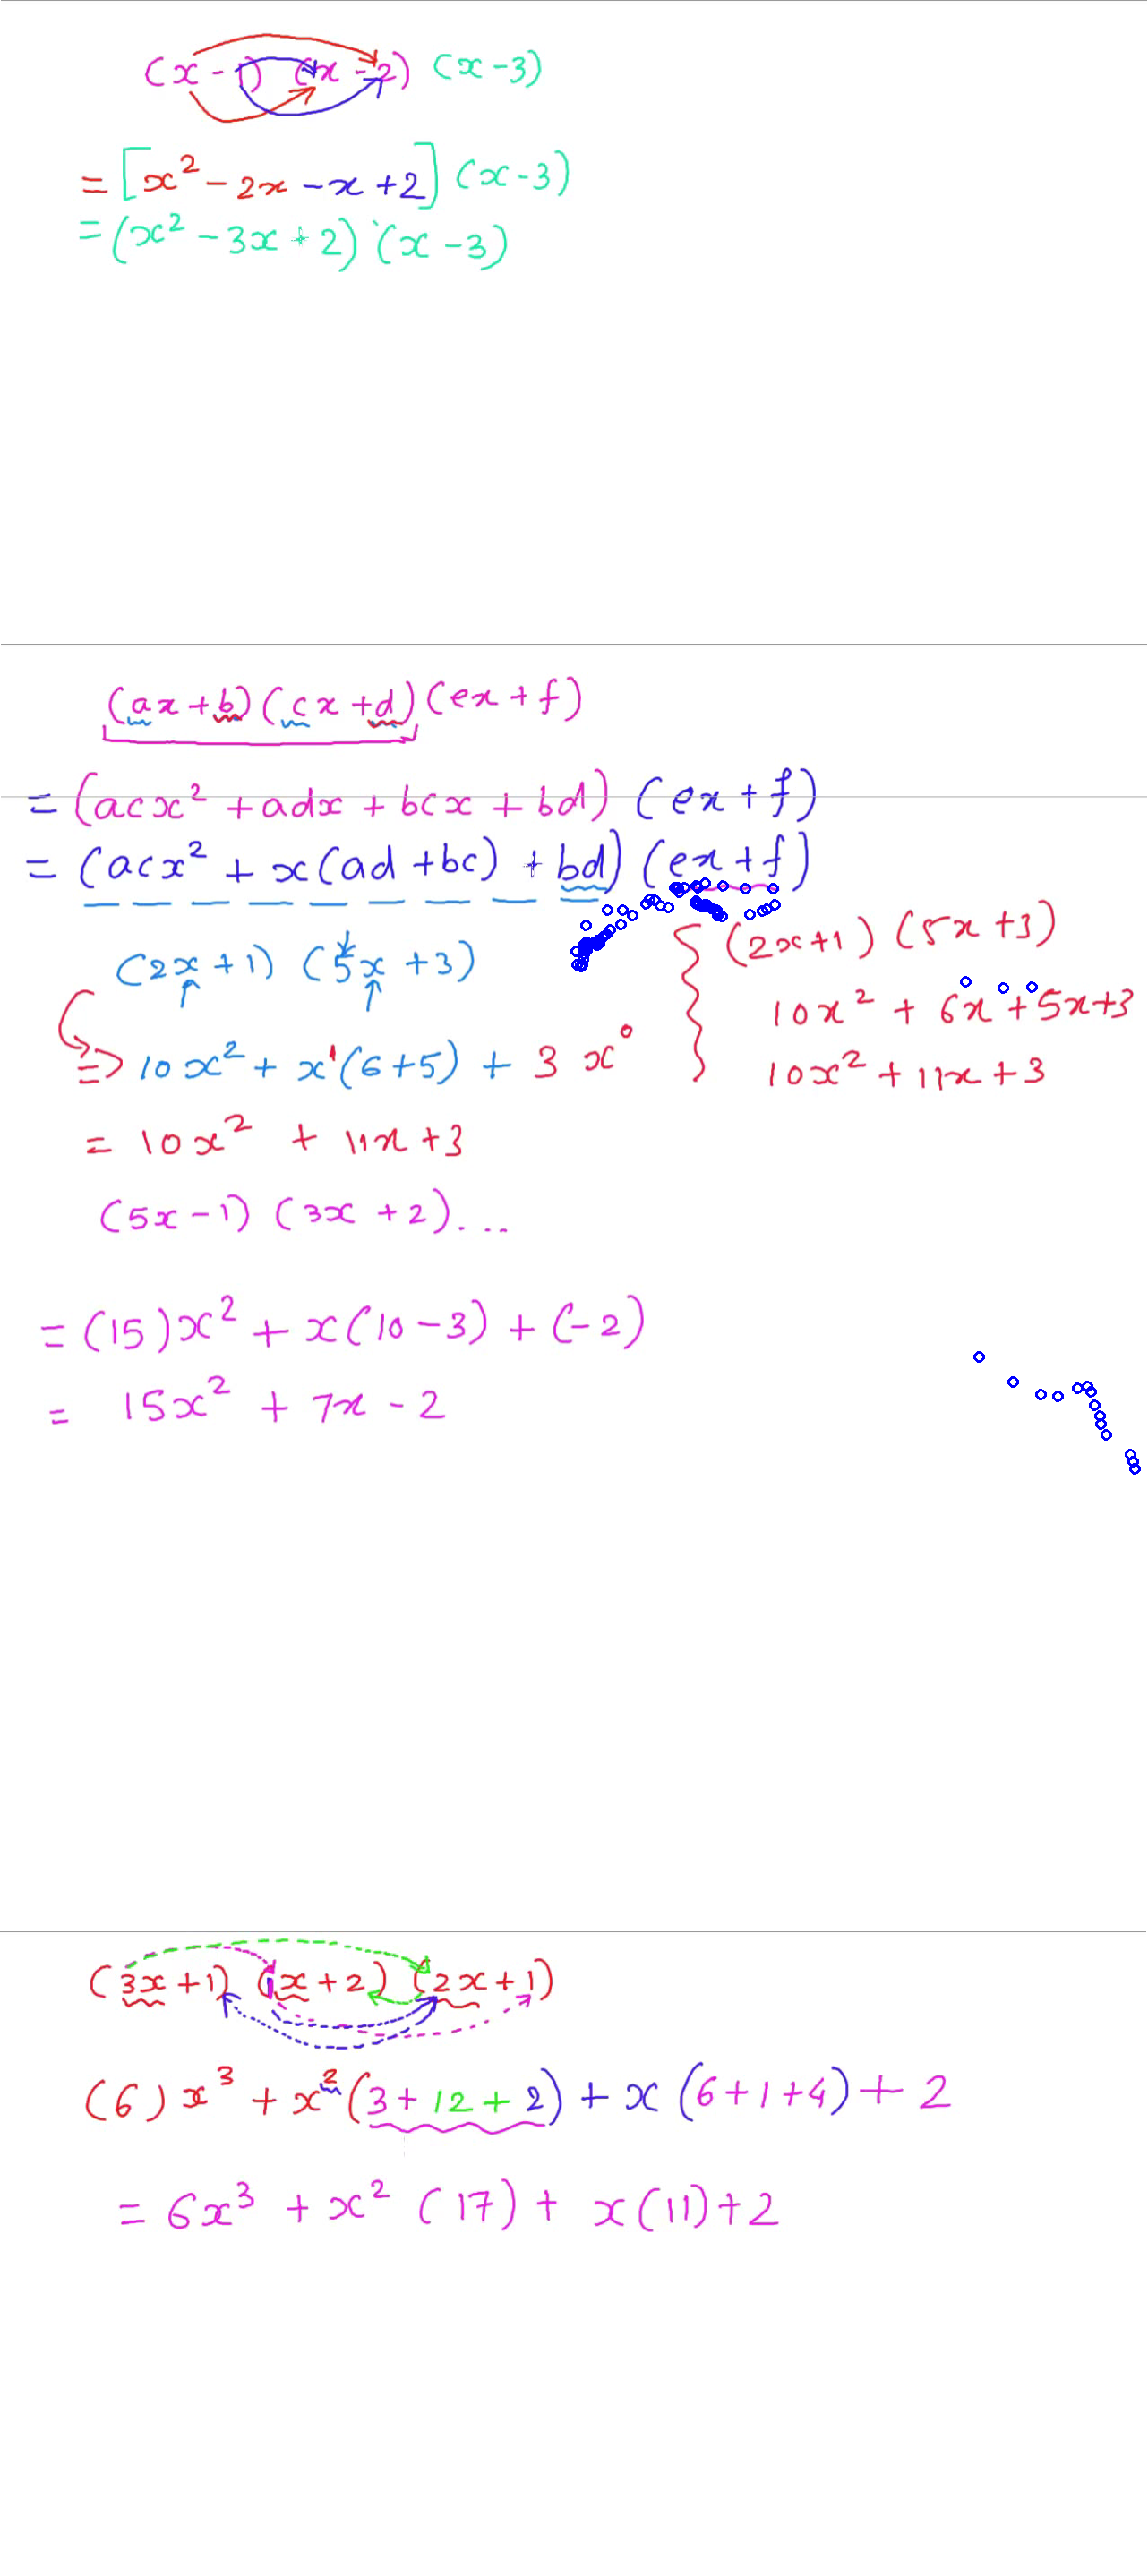 (x - 1) (x - 2) (x - 3)
= [x² - 2x - x + 2] (x - 3)
= (x² - 3x + 2) (x - 3)
(ax + b) (cx + d) (ex + f)
= (acx² + adx + bcx + bd) (ex + f)
= (acx² + x(ad + bc) + bd) (ex + f)
(2x + 1) (5x + 3)
=> 10x² + x¹(6 + 5) + 3 x⁰
= 10x² + 11x + 3
(2x + 1) (5x + 3)
10x² + 6x + 5x + 3
10x² + 11x + 3
(5x - 1) (3x + 2)...
= (15)x² + x(10 - 3) + (-2)
= 15x² + 7x - 2
(3x + 1) (x + 2) (2x + 1)
(6) x³ + x² (3 + 12 + 2) + x (6 + 1 + 4) + 2
= 6x³ + x² (17) + x(11) + 2